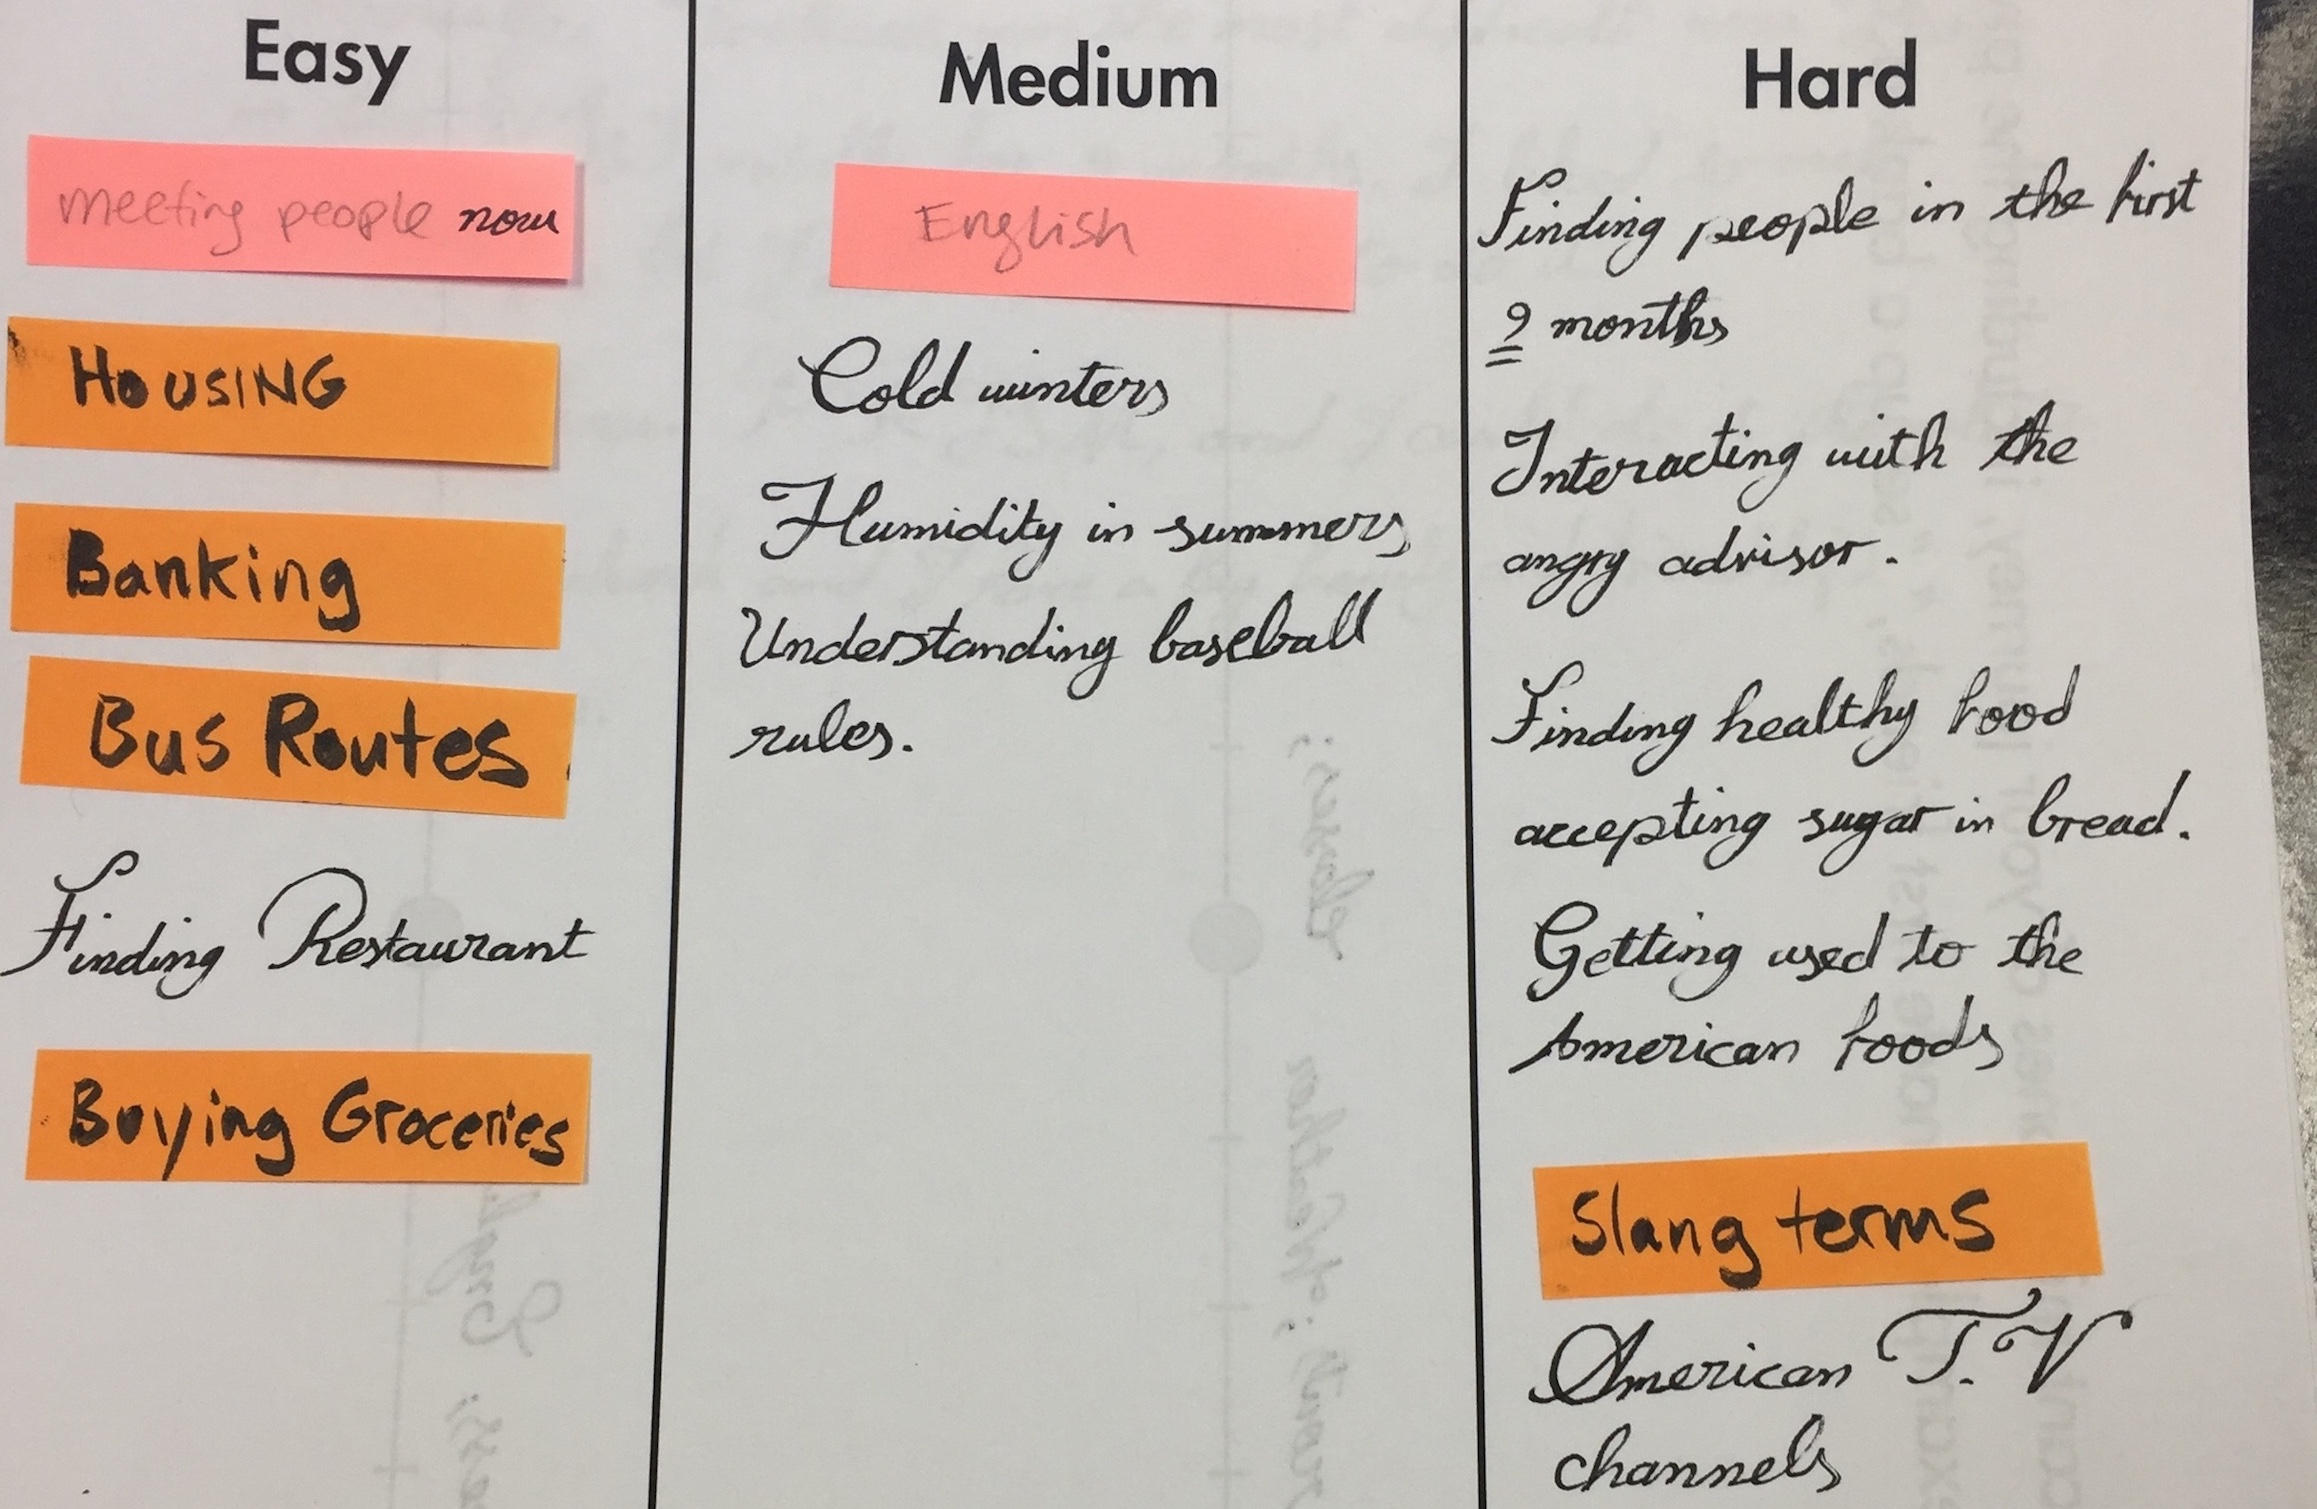 Easy
meeting people now
HOUSING
Banking
Bus Routes
Finding Restaurant
Buying Groceries
Medium
English
Cold winters
Humidity in summers
Understanding baseball
rules.
Hard
Finding people in the first
9 months
Interacting with the
angry advisor.
Finding healthy food
accepting sugar in bread.
Getting used to the
American foods
Slang terms
American T.V
channels